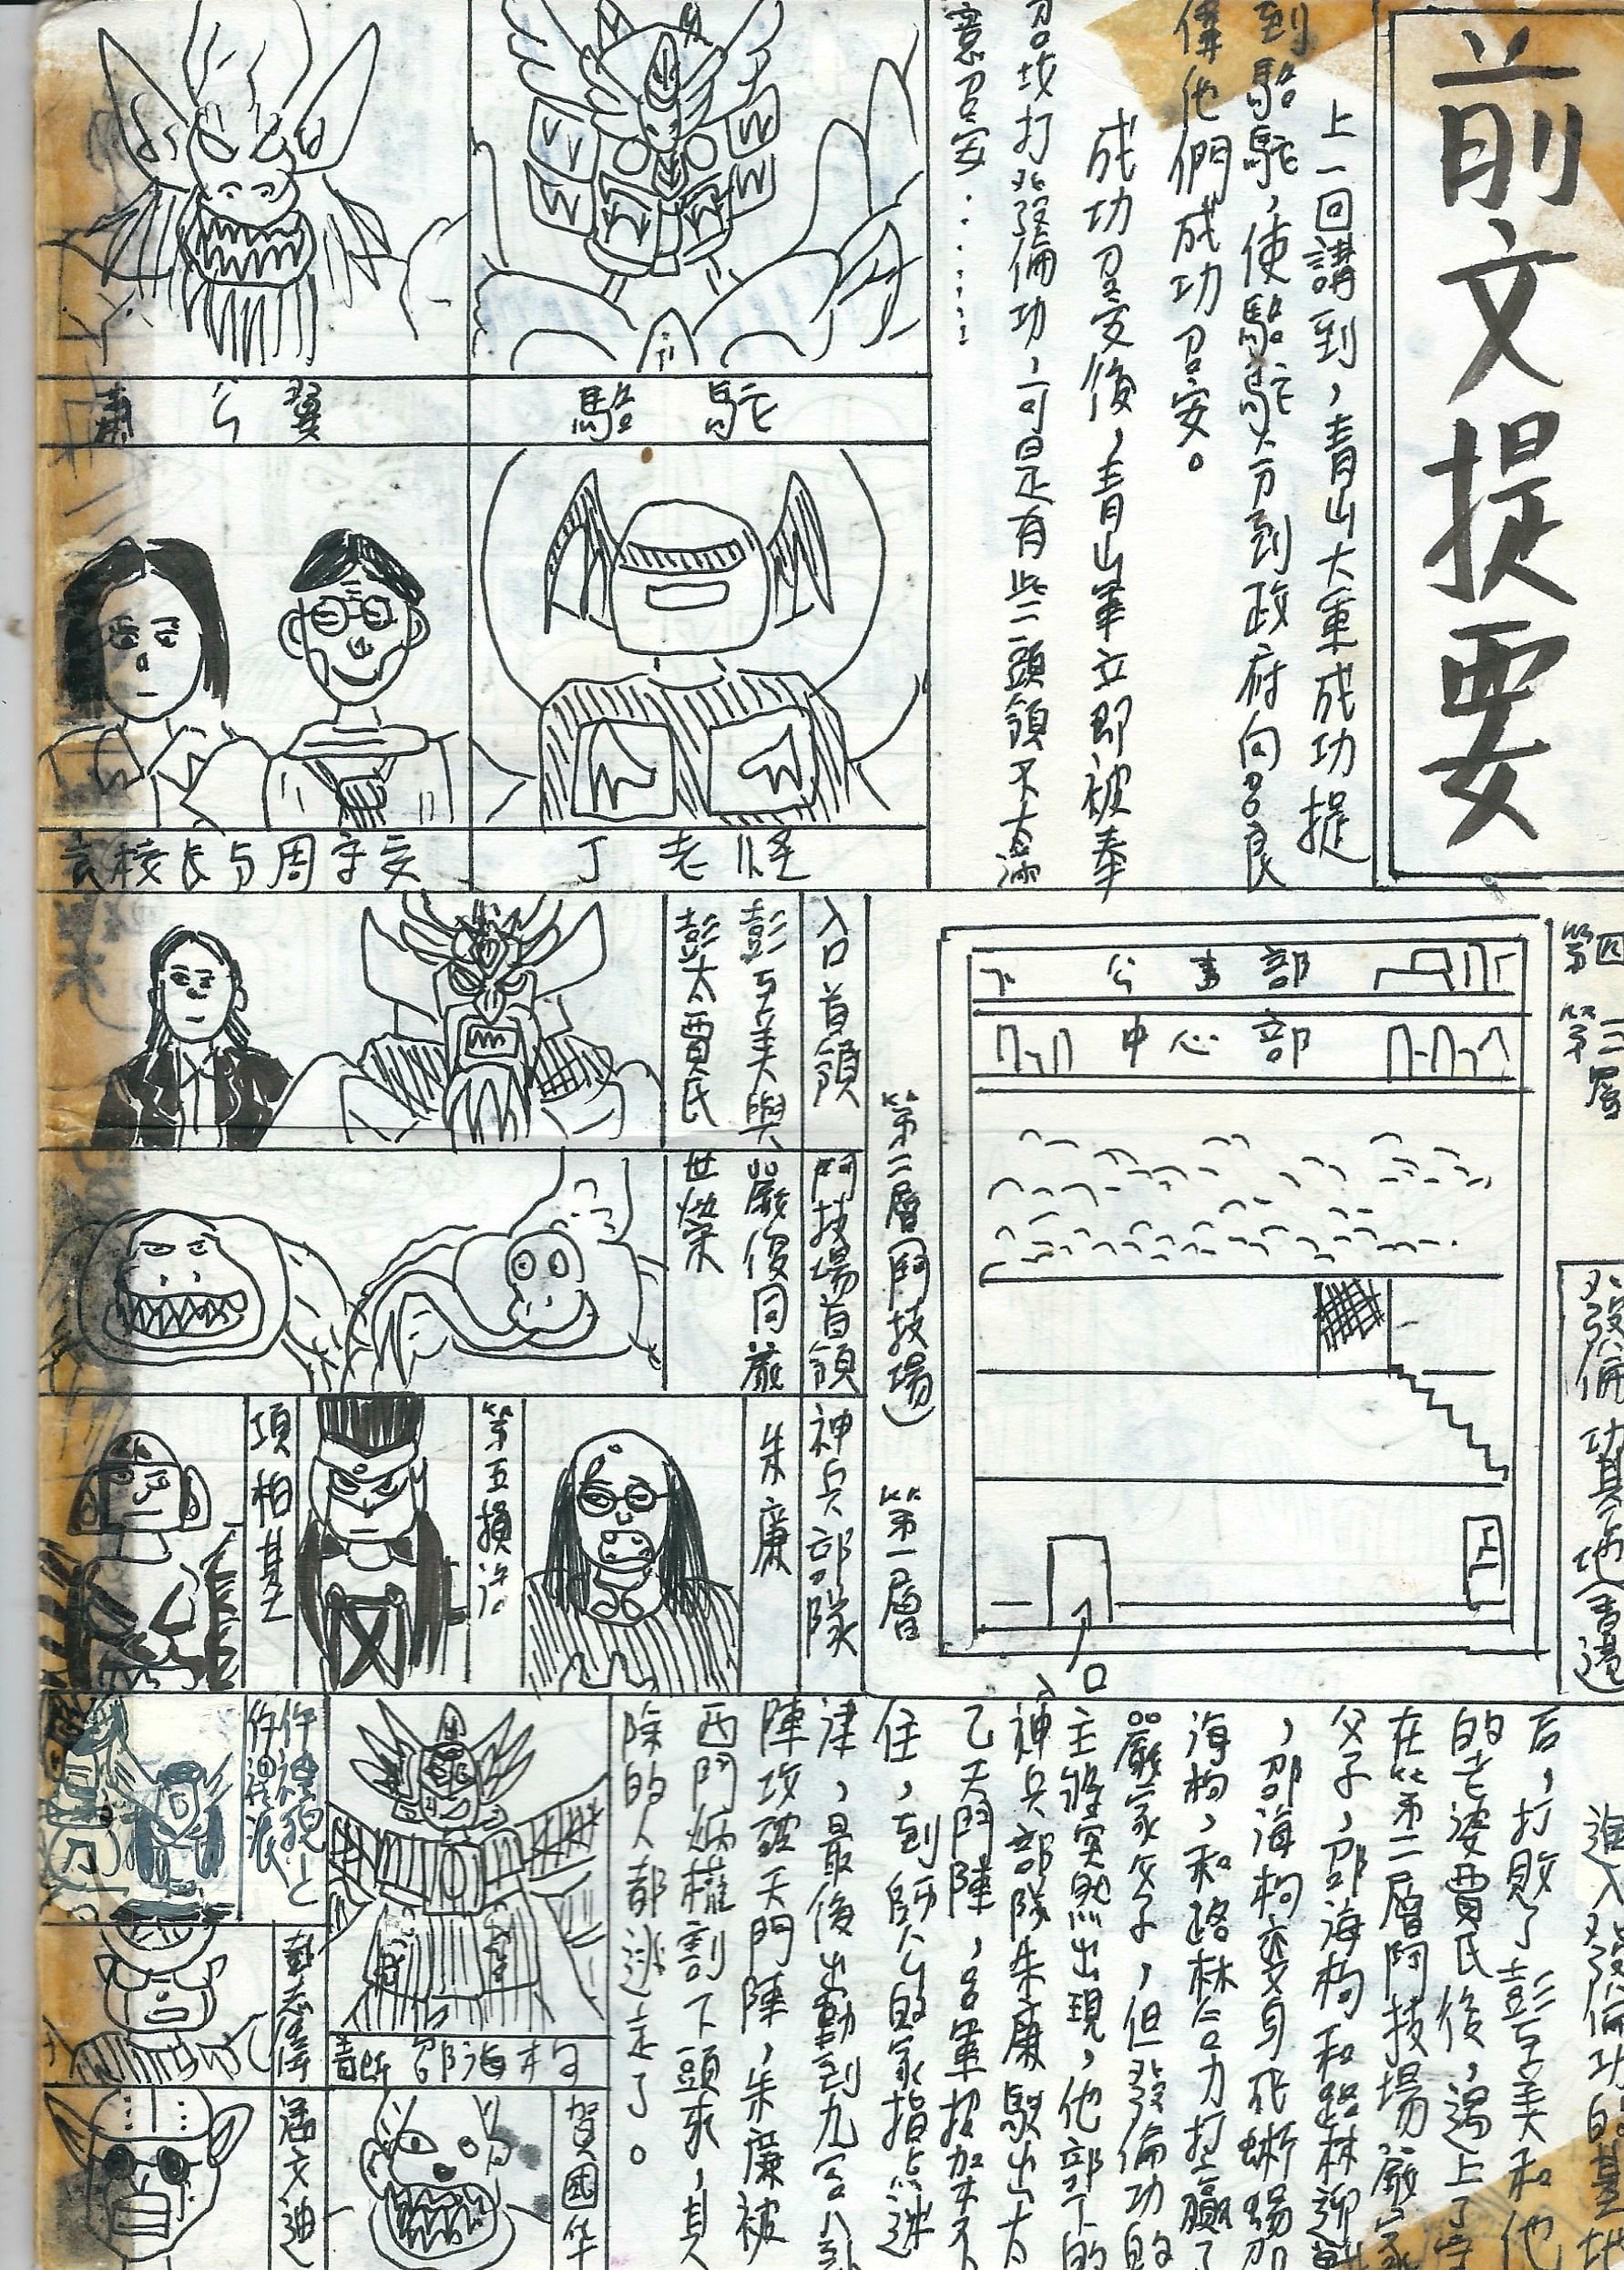 前文提要
上一回講到，青山大軍成功捉
到駱駝，使駱駝分到政府向呂良
偉他們成功召安。
成功召安後，青山軍立即被奉
召攻打發倫功，可是有些頭領不太滿
意召安…………
駱駝
蕭公翼
丁老怪
袁校長与周守妄
第四
第三層
公事部
中心部
第二層（鬥技場）
第一層
入口
入口首領
彭孑美與
彭太賈氏
鬥技場首領
嚴俊同嚴
世傑
神兵部隊
朱廉
第五損治
項柏基
進入發倫功的基地
后，打敗了彭孑美和他
的老婆賈氏後，遇上了守
在第二層鬥技場嚴家
父子，邵海枸和路林迎
，邵海枸變身
海枸，和路林合力打贏了
嚴家父子，但發倫功的
主將突然出現，他部下的
神兵部隊朱廉駛出太
乙天門陣，呂軍招架不
住，到師公的家指点迷
津，最後出動到九宮八卦
陣攻破天門陣，朱廉被
西門炳權割下頭來，其
除的人都逃走了。
邵海枸
賀國华
彭志偉
潘文迪